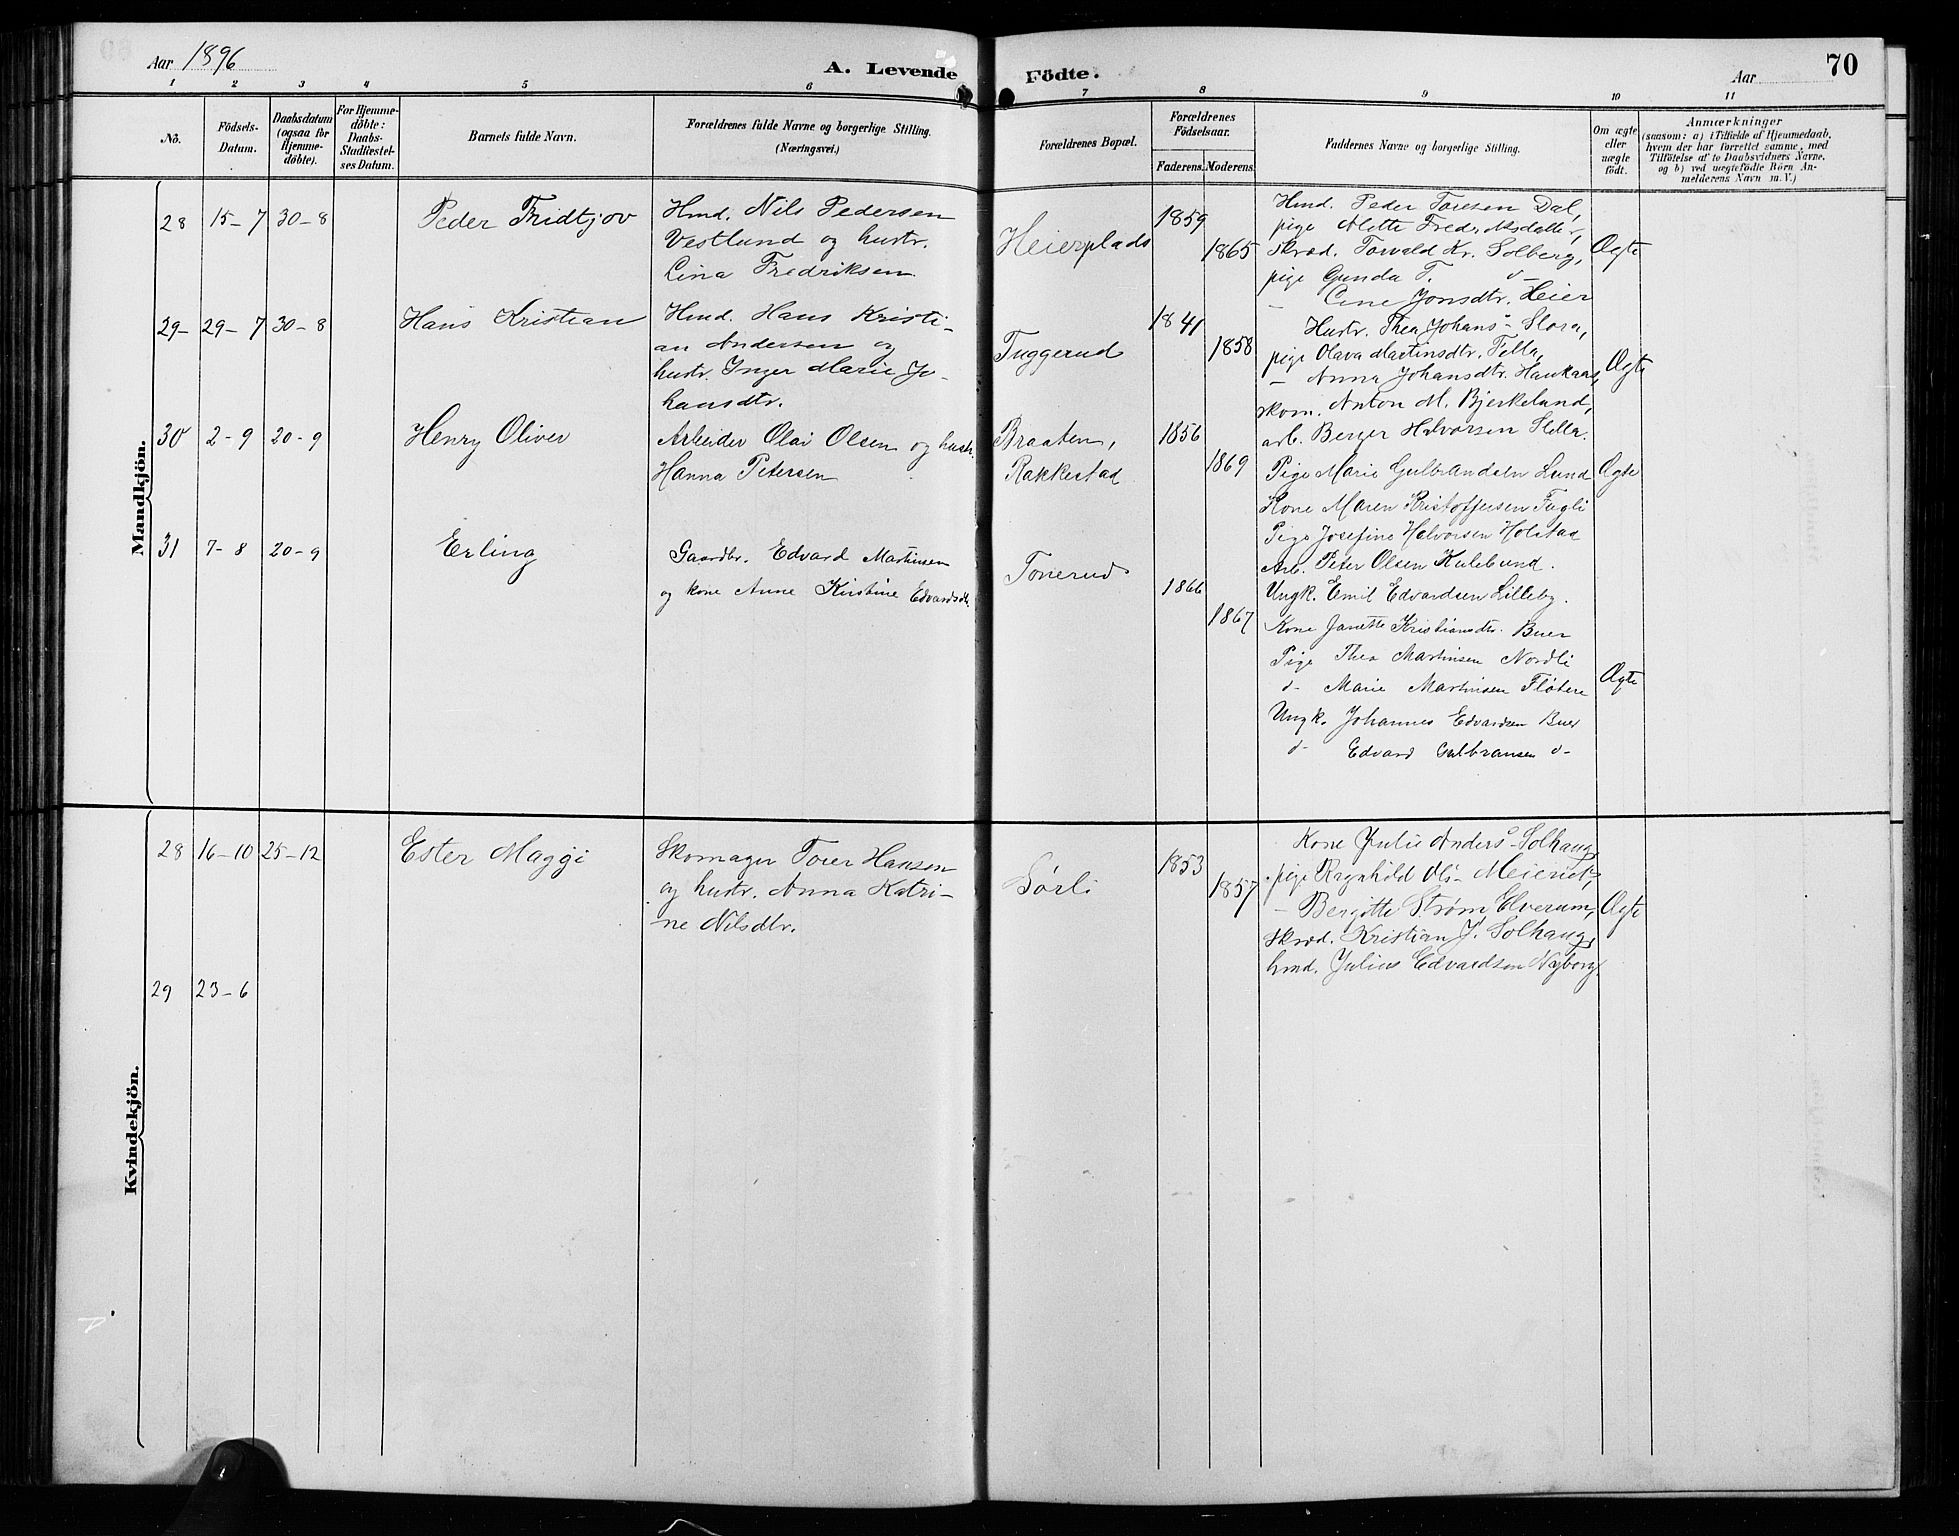 Aar 1896
A. Levende Födte.
Aar
70
1 2 3 4 5 6 7 8 9 10 11
No.
Födsels-
Datum.
Daabsdatum
(ogsaa for
Hjemme-
døbte).
For Hjemme-
døbte:
Daabs-
Stadfæstel-
ses Datum.
Barnets fulde Navn.
Forældrenes fulde Navne og borgerlige Stilling.
(Næringsvei.)
Forældrenes Bopæl.
Forældrenes
Födselsaar.
Faderens. Moderens.
Faddernes Navne og borgerlige Stilling.
Om ægte
eller
uægte
født.
Anmærkninger
(saasom: a) i Tilfælde af Hjemmedaab,
hvem der har forrettet samme, med
Tilføielse af to Daabsvidners Navne,
og b) ved uægtefödte Börn An-
melderens Navn m. V.)
Mandkjön.
28 15-7 30-8
Peder Fridtjov
Hmd. Nils Pedersen
Vestlund og hustr.
Lina Fredriksen
Heierplads
1859
1865
Hmd. Peder Toresen Dal,
pige Alette
Skræd. Torvald Kr. Solberg,
pige Gunda T. d-
- Line Jonsdtr. Heier
Ægte
29- 29-7 30-8
Hans Kristian
Hmd. Hans Kristi-
an Andersen og
hustr. Inger Marie Jo-
hansdtr.
Tuggerud
1841
1858
Hustr. Thea Johans- Slora,
pige Olava Martinsdtr.
- Anna Johansdtr. Haukaas,
skom. Anton M. Bjerkelund,
arb. Berger Halvorsen
Ægte
30 2-9 20-9
Henry Oliver
Arbeider Olai Olsen og hustr.
Hanna Petersen
Braaten,
Rakkestad
1856
1869
Pige Marie Gulbrandsen Lund
Kone Maren Kristoffersen Fugli
Pige Josefine Halvorsen Holstad
Arb. Peter Olsen Kulebund.
Ungk. Emil Edvardsen Lilleby.
Ægte
31 7-8 20-9
Erling
Gaardbr. Edvard Martinsen
og kone Anne Kirstine Edvardsdtr.
Tonerud
1866
1867
Kone Janette Kristiansdtr. Buer
Pige Thea Martinsen Nordli
d- Marie Martinsen Fløtere
Ungk. Johannes Edvardsen Buer
d- Edvard Gulbransen d-
Ægte
Kvindekjön.
28 16-10 25-12
Ester Maggi
Skomager Torer Hansen
og hustr. Anna Katri-
ne Nilsdtr.
Sørli
1853
1857
Kone Julie Anders- Solhaug,
pige Ragnhild Ols- Meieriet,
- Bergitte Strøm Elverum,
Skræd. Kristian J. Solhaug,
hmd. Julius Edvardsen Nyborg.
Ægte
29 23-6